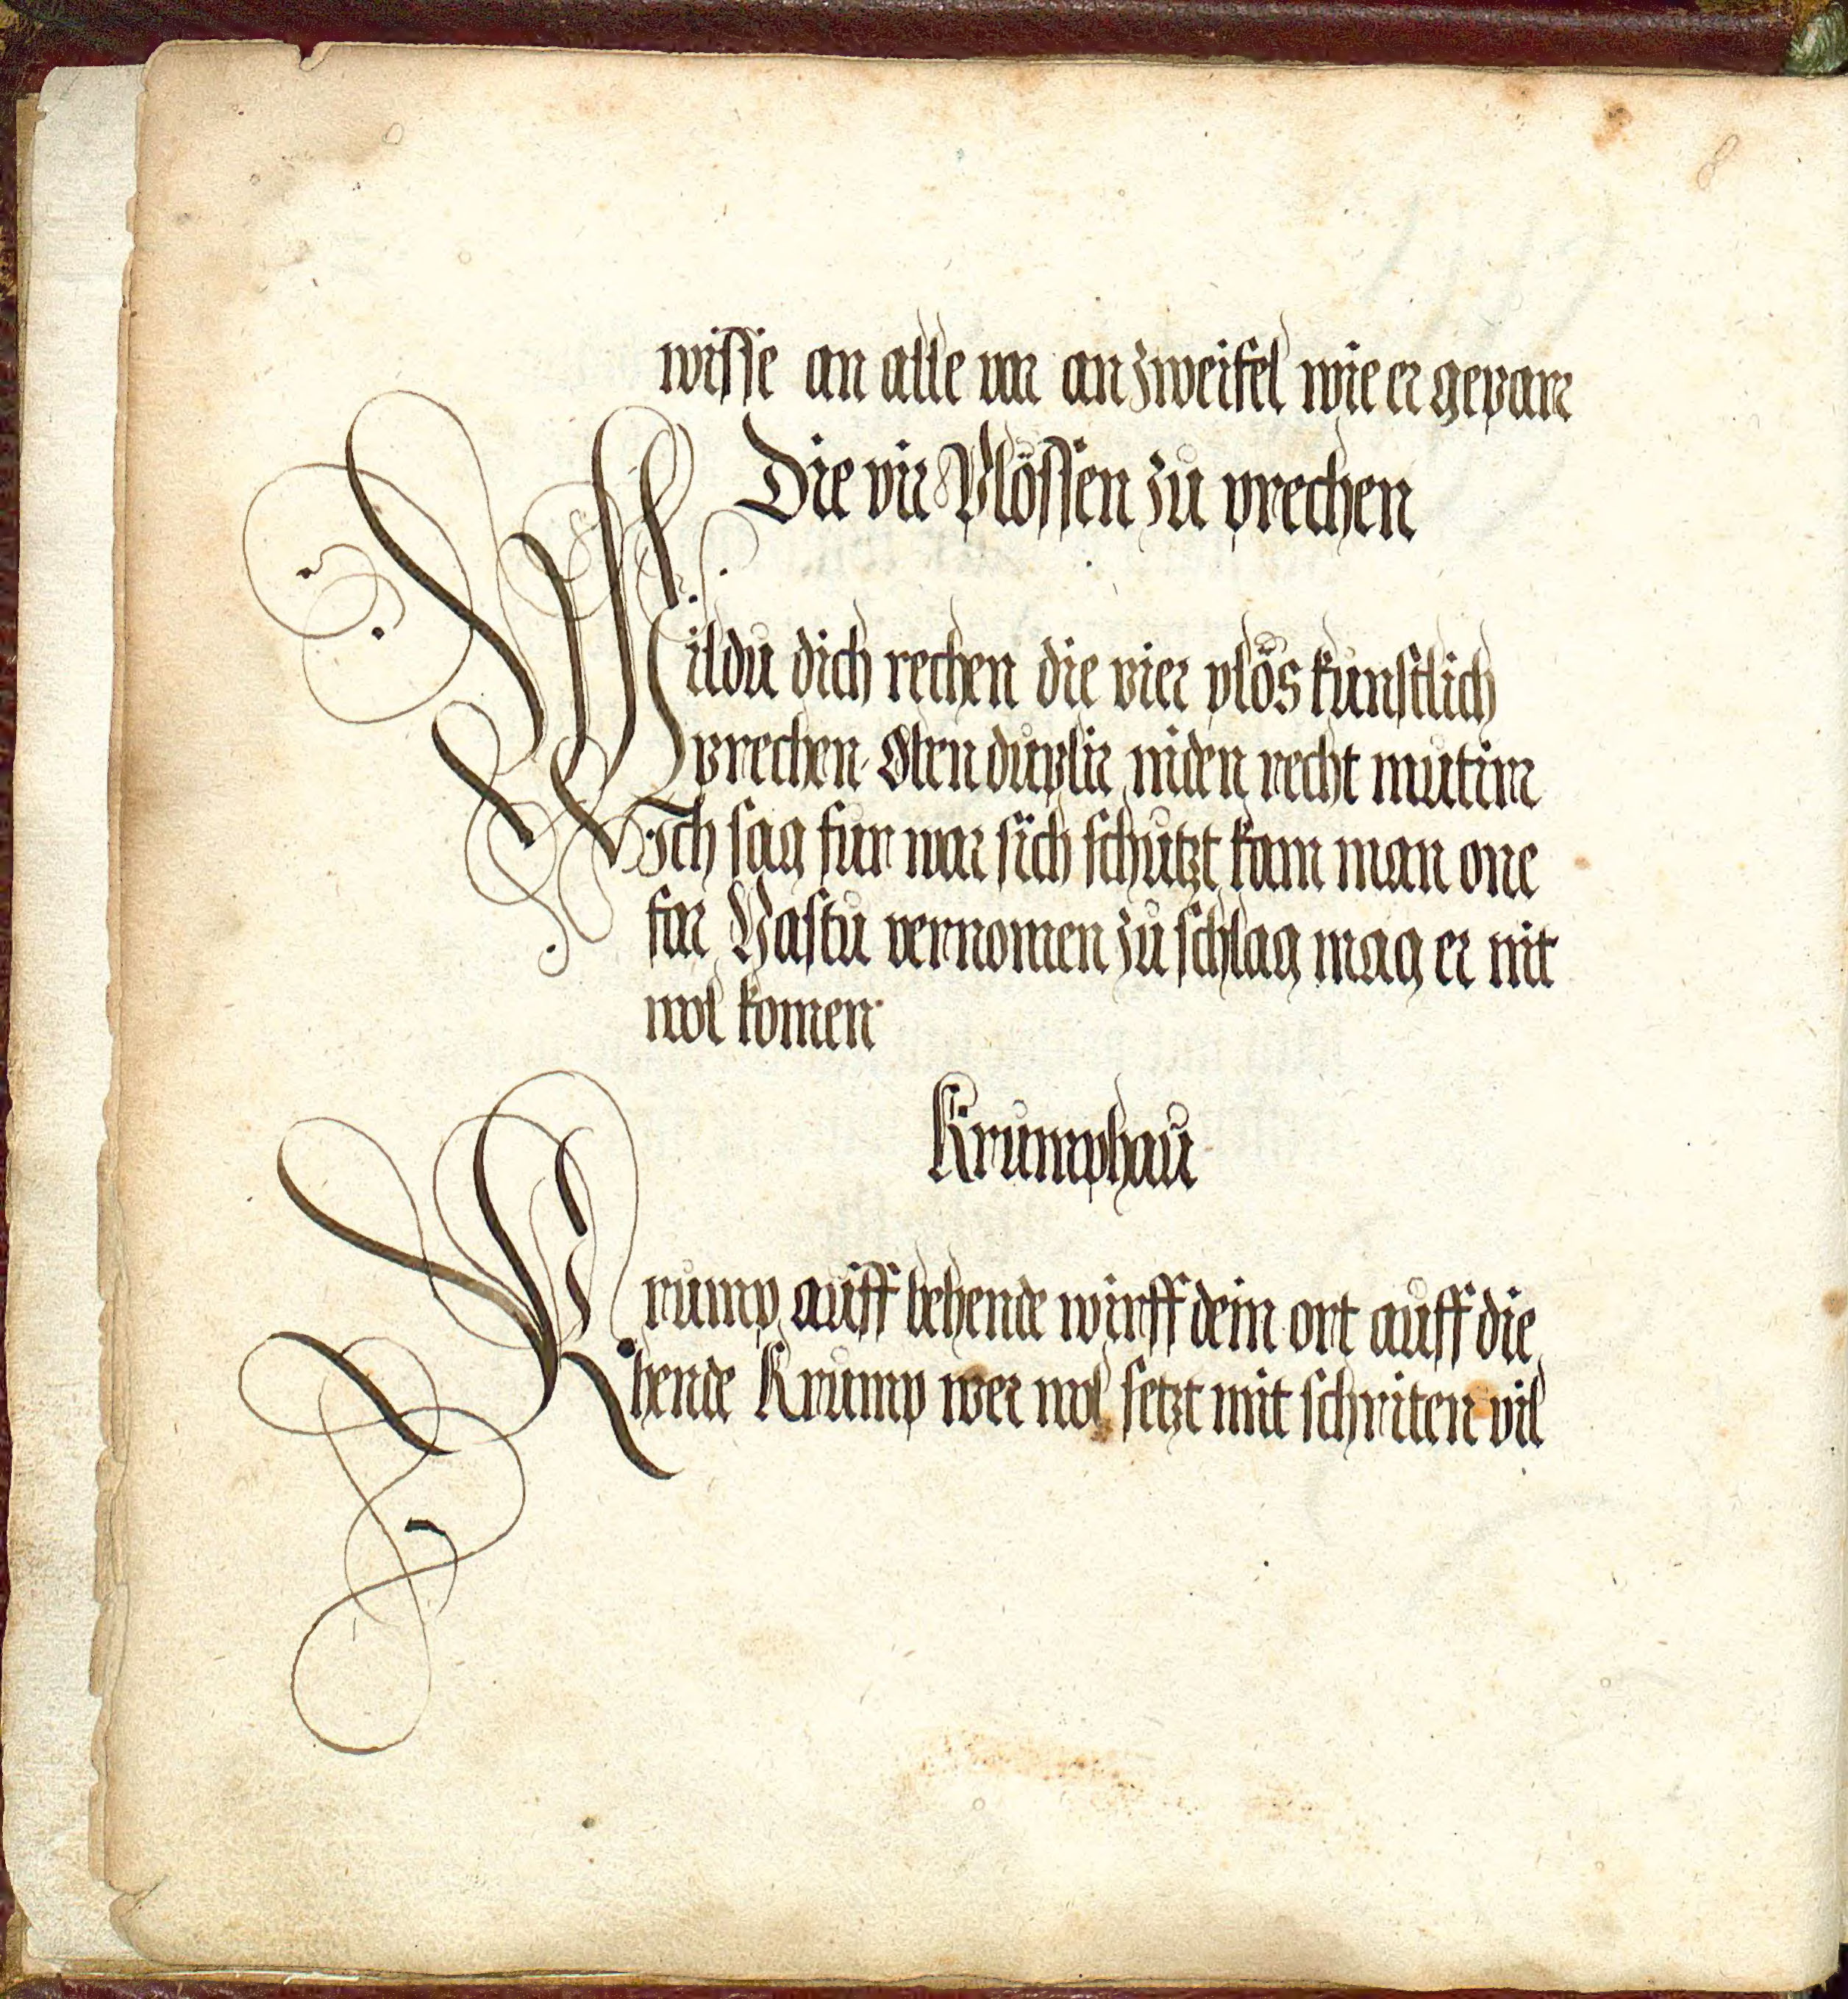 8
wisse an alle var an zweifel wie er gepar
Die vir Plössen zu prechen
Wildu dich rechen die vier plös kunstlich
prechen Oben duplir niden recht mutir
Ich sag fur war sich schutzt kain man one
far Hastu vernomen zu schlag mag er nit
wol komen
Krumphau
Krump auff behende wirff dein ort auff die
hende Krump wer wol setzt mit schriten vil